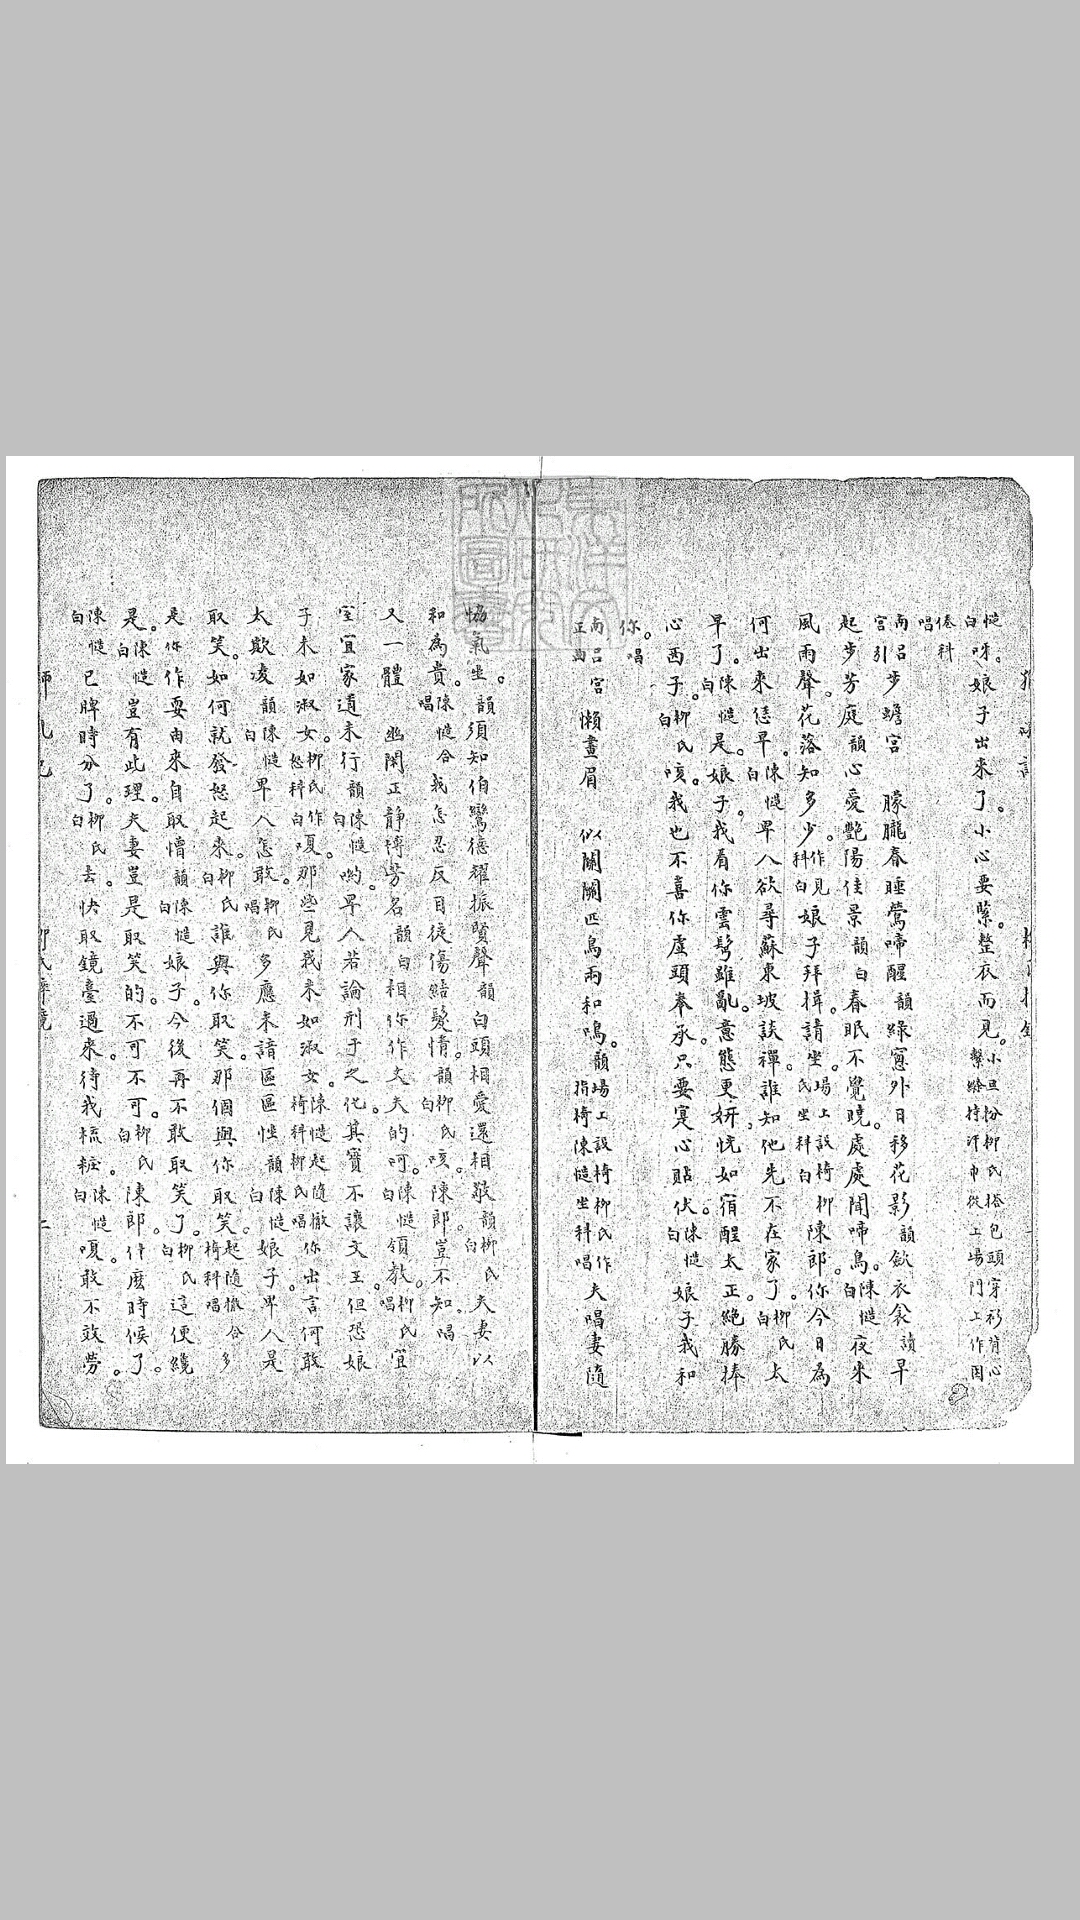 慥白呀。娘子出來了。小心要緊。整衣而見。小旦扮柳氏搭包頭穿衫背心繫絛持汗巾從上場門上作困
倦科唱
南呂宮引 步蟾宮 朦朧春睡鶯啼醒韻綠窻外日移花影韻斂衣衾讀早
起步芳庭韻心愛艷陽佳景韻白春眠不覺曉。處處聞啼鳥。陳慥夜來
風雨聲。花落知多少。作見科白娘子拜揖。請坐。場上設椅柳氏坐科白陳郎。你今日為
何出來恁早。陳慥白卑人欲尋蘇東坡談禪。誰知他先不在家了。柳氏白太
早了。陳慥白是。娘子。我看你雲鬂雖亂。意態更妍。恍如宿酲太正。絶勝捧
心西子。柳氏白咳。我也不喜你虛頭奉承。只要寔心貼伏。陳慥白娘子我和
你。唱
南呂宮正曲 懶畫眉 似關關匹鳥兩和鳴。韻場上設椅柳氏作指椅陳慥坐科唱夫唱妻隨
恊氣坐。韻須知伯鸞德耀振賢聲韻白頭相愛還相敬韻柳氏白夫妻以
和為貴。陳慥合唱我怎忍反目徒傷結髮情。韻柳氏白咳。陳郎。豈不知。唱
又一體 幽閑正靜得芳名韻白相你作丈夫的呵。陳慥白領教。柳氏唱宜
室宜家道未行韻陳慥白喲。卑人若論刑于之化。其實不讓文王。但恐娘
子未如淑女。柳氏作怒科白嗄。那些見我未如淑女。陳慥起隨撤椅科柳氏唱你出言何敢
太欺凌韻陳慥白卑人怎敢。柳氏唱多應未諳區區性韻陳慥白娘子卑人是
取笑。如何就發怒起來。柳氏白誰與你取笑。那個與你取笑。起隨撤椅科合唱多
是你作耍由來自取憎韻陳慥白娘子。今後再不敢取笑了。柳氏白這便纔
是。陳慥白豈有此理。夫妻豈是取笑的。不可不可。柳氏白陳郎。什麽時候了。
陳慥白已牌時分了。柳氏白去。快取鏡臺過來。待我梳粧。陳慥白嗄。敢不效勞。